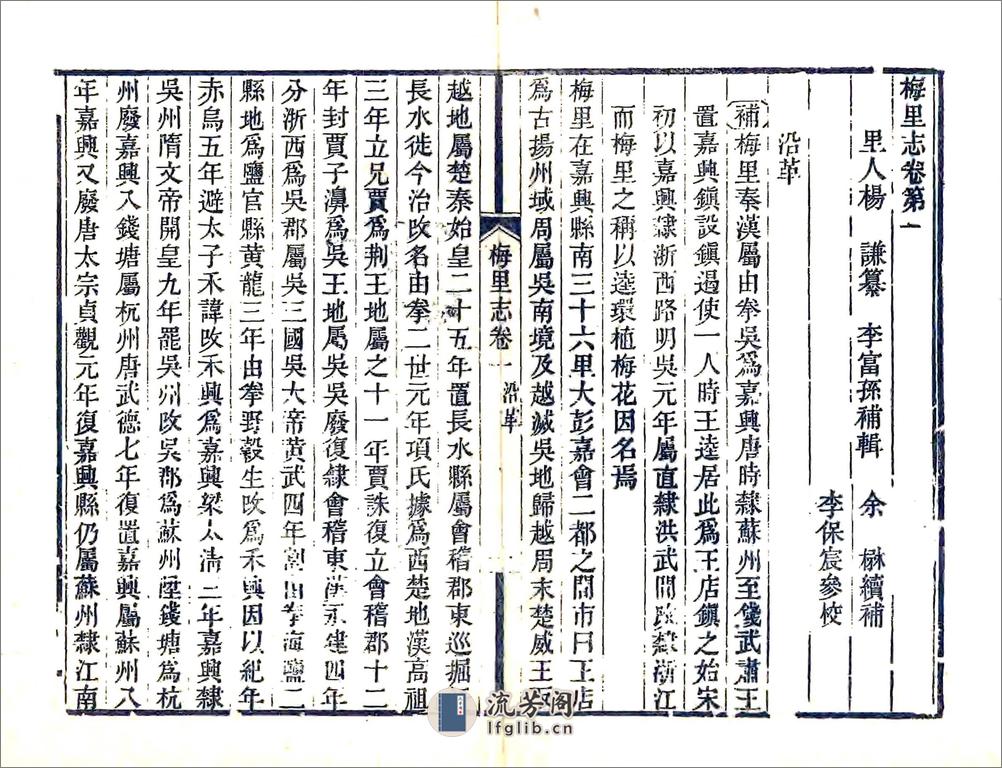 梅里志卷第一
里人楊 謙纂 李富孫補輯 余 楙續補
李保宸參校
沿革
補梅里秦漢屬由拳吳爲嘉興唐時隸蘇州至錢武肅王
置嘉興鎮設鎮遏使一人時王逵居此爲王店鎮之始宋
初以嘉興隸浙西路明吳元年屬直隸洪武間改隸浙江
而梅里之稱以逵環植梅花因名焉
梅里在嘉興縣南三十六里大彭嘉會二都之間市曰王店
爲古揚州域周屬吳南境及越滅吳地歸越周末楚威王
梅里志卷一 沿革
越地屬楚秦始皇二十五年置長水縣屬會稽郡東巡掘
長水徙今治改名由拳二世元年項氏據爲西楚地漢高祖
三年立兄賈爲荆王地屬之十一年賈誅復立會稽郡十二
年封賈子濞爲吳王地屬吳吳廢復隸會稽東漢永建四年
分浙西爲吳郡屬吳三國吳大帝黃武四年割由拳海鹽二
縣地爲鹽官縣黃龍三年由拳野穀生改爲禾興因以紀年
赤烏五年避太子禾諱改禾興爲嘉興梁太清三年嘉興隸
吳州隋文帝開皇九年罷吳州改吳郡爲蘇州陞錢塘爲杭
州廢嘉興入錢塘屬杭州唐武德七年復置嘉興屬蘇州八
年嘉興又廢唐太宗貞觀元年復嘉興縣仍屬蘇州隸江南
流芳阁
lfglib.cn